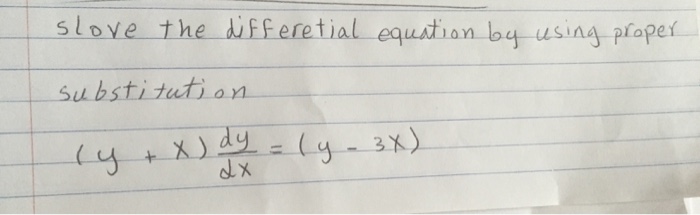 slove the differetial equation by using proper
substitution
(y + x) dy/dx = (y - 3x)